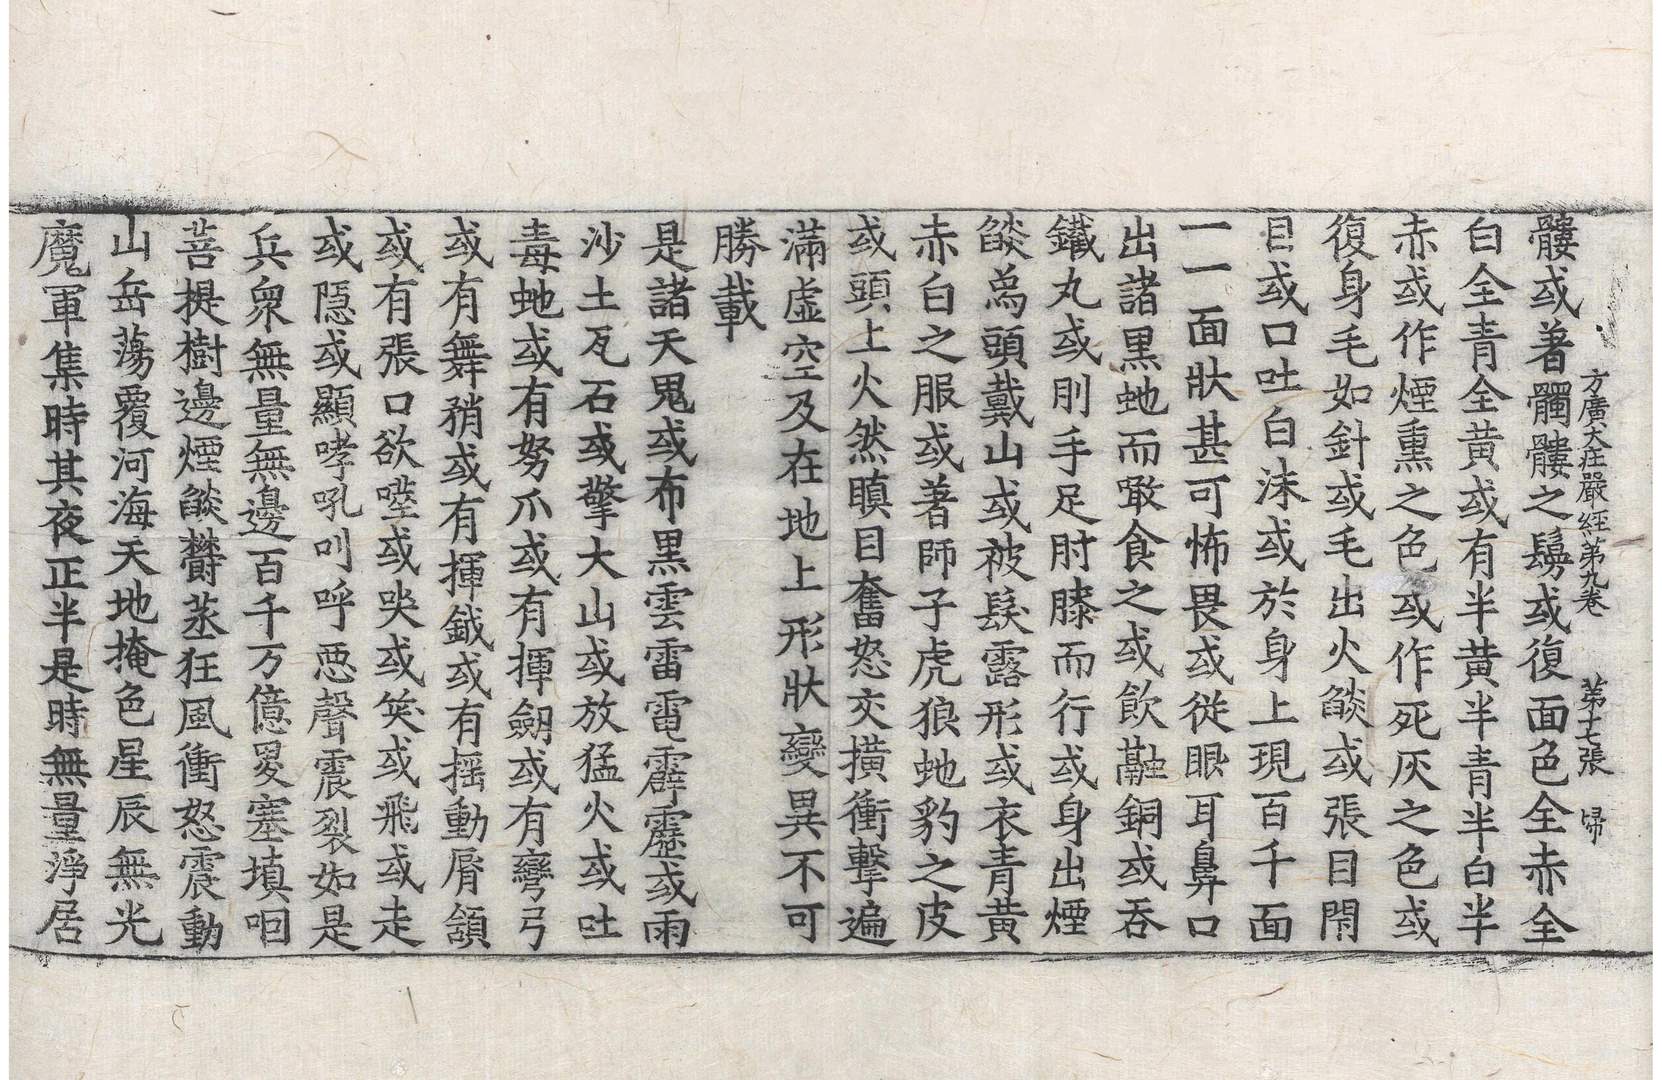 方廣大莊嚴經第九卷 第七張 㷌
髏或著髑髏之鬘或復面色全赤全
白全青全黃或有半黃半青半白半
赤或作煙熏之色或作死灰之色或
復身毛如針或毛出火燄或張目閇
目或口吐白沫或於身上現百千面
一一面狀甚可怖畏或從眼耳鼻口
出諸黑虵而噉食之或飲融銅或吞
鐵丸或刖手足肘膝而行或身出煙
燄爲頭戴山或被髮露形或衣青黃
赤白之服或著師子虎狼虵豹之皮
或頭上火然瞋目奮怒交橫衝擊遍
滿虛空及在地上形狀變異不可
勝載
是諸天鬼或布黑雲雷電霹靂或雨
沙土瓦石或擎大山或放猛火或吐
毒虵或有努爪或有揮劒或有彎弓
或有舞矟或有揮鉞或有摇動脣頷
或有張口欲噬或哭或笑或飛或走
或隱或顯哮吼叫呼惡聲震裂如是
兵衆無量無邊百千万億畟塞填咽
菩提樹邊煙燄欝蒸狂風衝怒震動
山岳蕩覆河海天地掩色星辰無光
魔軍集時其夜正半是時無量淨居